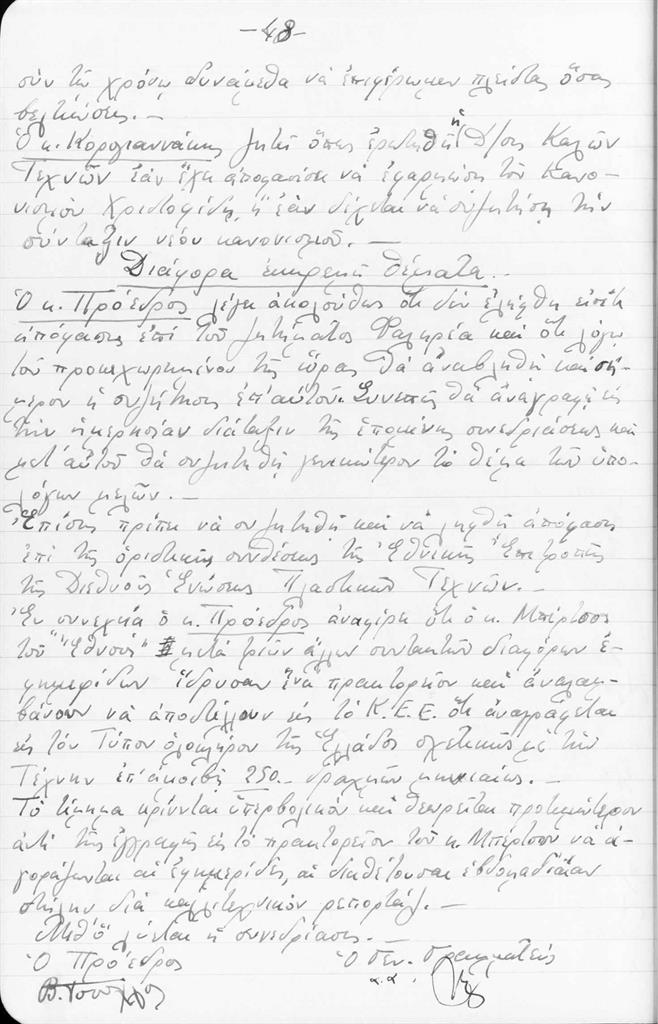 -48-
σὺν τῷ χρόνῳ δυνάμεθα νὰ ἐπιφέρωμεν πλείστας ὅσας
βελτιώσεις.—
Ὁ κ. Καραγιαννάκης ζητεῖ ὅπως ἐρωτηθῇ ἡ Δ/σις Καλῶν
Τεχνῶν ἐὰν ἔχῃ ἀποφασίσει νὰ ἐφαρμόσῃ τὸν Κανο-
νισμὸν Χριστοφίδη, ἢ ἐὰν δέχεται νὰ συζητήσῃ τὴν
σύνταξιν νέου κανονισμοῦ.—
Διάφορα ὑπηρεσιακὰ θέματα.-
Ὁ κ. Πρόεδρος λέγει ἀκολούθως ὅτι δὲν ἐλήφθη εἰσέτι
ἀπόφασις ἐπὶ τοῦ ζητήματος Φαληρέα καὶ ὅτι λόγῳ
τοῦ προκεχωρημένου τῆς ὥρας θὰ ἀναβληθῇ καὶ σή-
μερον ἡ συζήτησις ἐπ' αὐτοῦ. Συνεπῶς θὰ ἀναγραφῇ εἰς
τὴν ἡμερησίαν διάταξιν τῆς ἑπομένης συνεδριάσεως καὶ
μετ' αὐτοῦ θὰ συζητηθῇ γενικώτερον τὸ θέμα τῶν ὑπο-
λόγων μελῶν.—
Ἐπίσης πρέπει νὰ συζητηθῇ καὶ νὰ ληφθῇ ἀπόφασις
ἐπὶ τῆς ὁριστικῆς συνθέσεως τῆς Ἐθνικῆς Ἐπιτροπῆς
τῆς Διεθνοῦς Ἑνώσεως Πλαστικῶν Τεχνῶν.—
Ἐν συνεχείᾳ ὁ κ. Πρόεδρος ἀναφέρει ὅτι ὁ κ. Μπίρτσος
τοῦ "Ἔθνους" μετὰ τριῶν ἄλλων συντακτῶν διαφόρων ἐ-
φημερίδων ἵδρυσαν ἕνα πρακτορεῖον καὶ ἀναλαμ-
βάνουν νὰ ἀποστέλλουν εἰς τὸ Κ.Ε.Ε. ὅτι ἀναγράφεται
εἰς τὸν Τύπον ὁλοκλήρου τῆς Ἑλλάδος σχετικῶς μὲ τὴν
Τέχνην ἐπ' ἀμοιβῇ 250.- δραχμῶν μηνιαίως.—
Τὸ τίμημα κρίνεται ὑπερβολικὸν καὶ θεωρεῖται προτιμώτερον
ἀντὶ τῆς ἐγγραφῆς εἰς τὸ πρακτορεῖον τοῦ κ. Μπίρτσου νὰ ἀ-
γοράζωνται αἱ ἐφημερίδες, αἱ διαθέτουσαι ἑβδομαδιαίαν
στήλην διὰ καλλιτεχνικὸν ρεπορτάζ.—
Μεθ' ὃ λύεται ἡ συνεδρίασις.—
Ὁ Πρόεδρος Ὁ Γεν. Γραμματεύς
α.α.